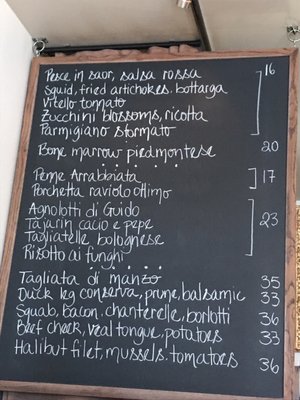 Pesce in saor, salsa rossa
Squid, fried artichokes, bottarga
Vitello tonnato
Zucchini blossoms, ricotta
Parmigiano sformato
16
Bone marrow piedmontese 20
Penne Arrabbiata
Porchetta raviolo ottimo
17
Agnolotti di Guido
Tajarin cacio e pepe
Tagliatelle bolognese
Risotto ai funghi
23
Tagliata di manzo 35
Duck leg conserva, prune, balsamic 33
Squab, bacon, chanterelle, borlotti 36
Beef cheek, veal tongue, potatoes 33
Halibut filet, mussels, tomatoes 36